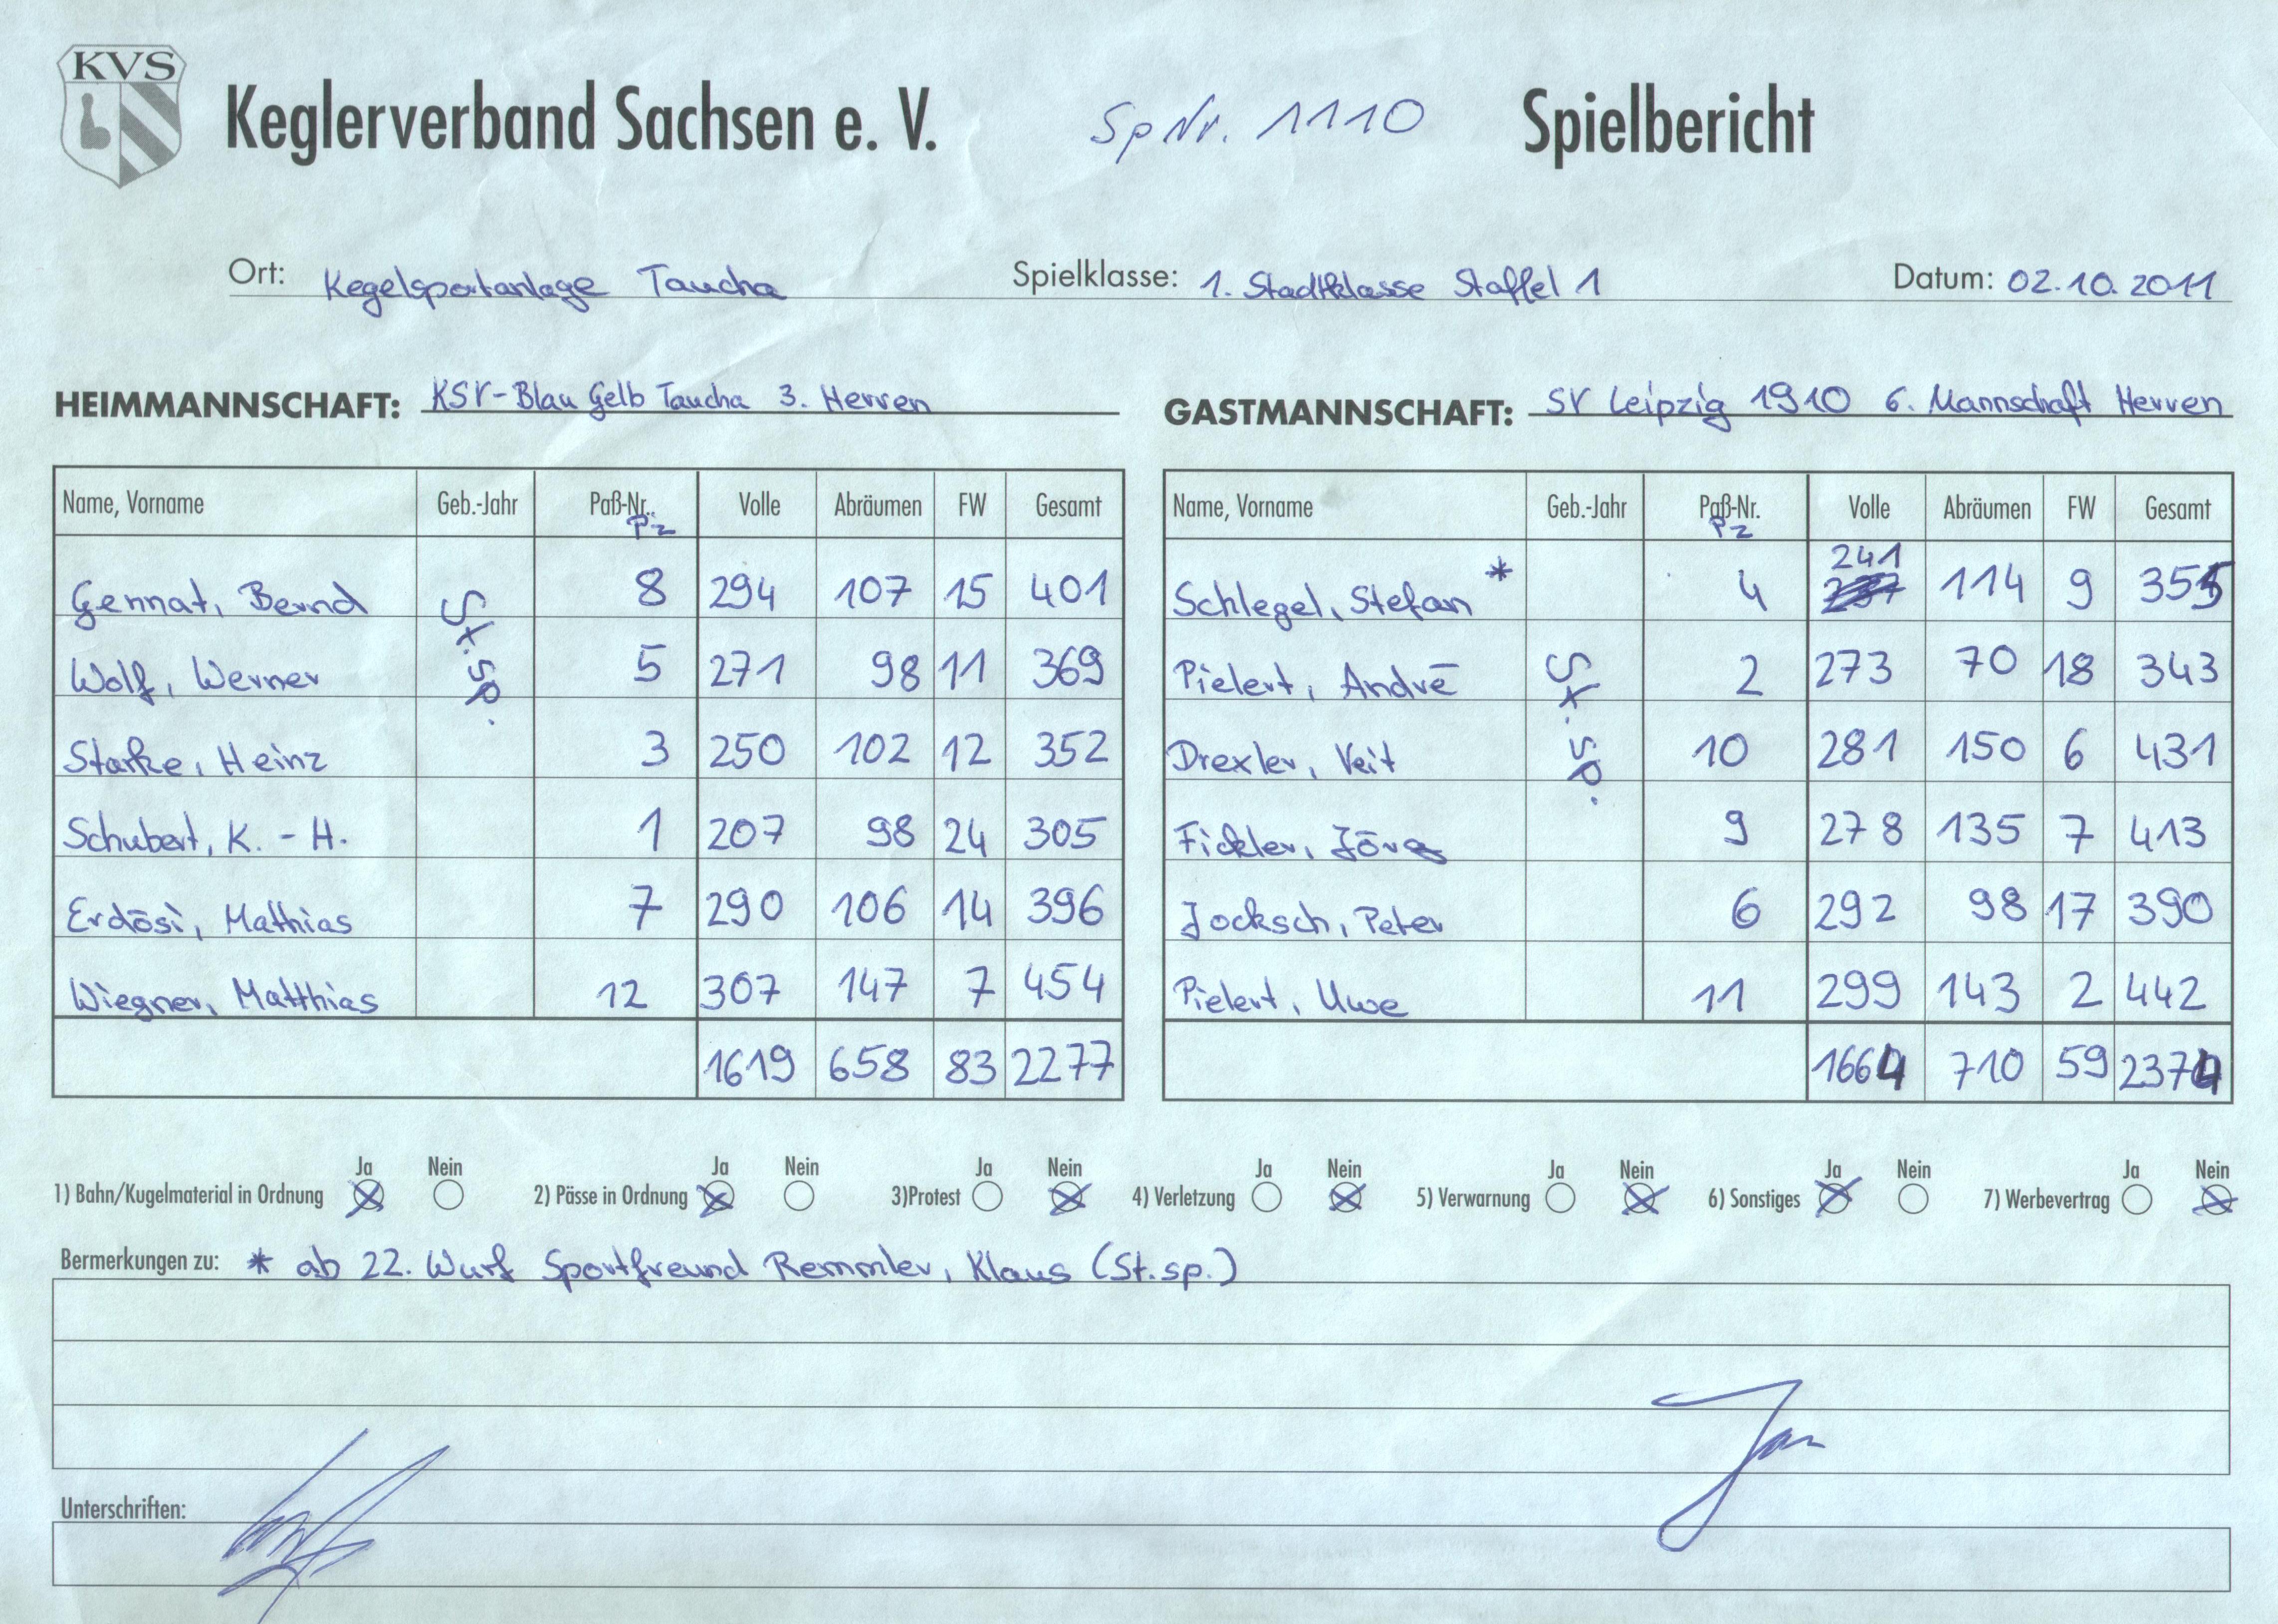 KVS
Keglerverband Sachsen e. V. SpNr. 1110 Spielbericht
Ort: Kegelsportanlage Taucha Spielklasse: 1. Stadtklasse Staffel 1 Datum: 02.10.2011
HEIMMANNSCHAFT: KSV-Blau Gelb Taucha 3. Herren
Name, Vorname Geb.-Jahr Paß-Nr. Volle Abräumen FW Gesamt
Pz
Gennat, Bernd 8 294 107 15 401
St.sp.
Wolf, Werner 5 271 98 11 369
Starke, Heinz 3 250 102 12 352
Schubert, K. - H. 1 207 98 24 305
Erdösi, Matthias 7 290 106 14 396
Wiegner, Matthias 12 307 147 7 454
1619 658 83 2277
GASTMANNSCHAFT: SV Leipzig 1910 6. Mannschaft Herren
Name, Vorname Geb.-Jahr Paß-Nr. Volle Abräumen FW Gesamt
Pz
Schlegel, Stefan * 4 241 114 9 355
Pielert, André 2 273 70 18 343
St.sp.
Drexler, Veit 10 281 150 6 431
Fickler, Jörg 9 278 135 7 413
Jocksch, Peter 6 292 98 17 390
Pielert, Uwe 11 299 143 2 442
1664 710 59 2374
Ja Nein Ja Nein Ja Nein Ja Nein Ja Nein Ja Nein Ja Nein
1) Bahn/Kugelmaterial in Ordnung 2) Pässe in Ordnung 3)Protest 4) Verletzung 5) Verwarnung 6) Sonstiges 7) Werbevertrag
Bermerkungen zu: * ab 22. Wurf Sportfreund Remmler, Klaus (St.sp.)
Unterschriften: